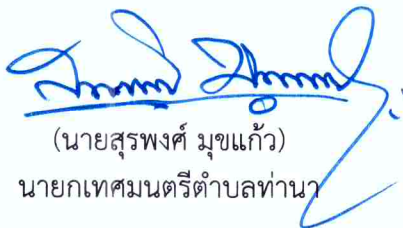 (นายสุรพงศ์ มุขแก้ว)
นายกเทศมนตรีตำบลท่านา